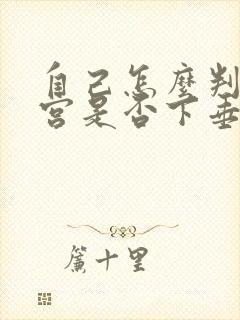 自己怎麼判
宮是否下垂
簾十里